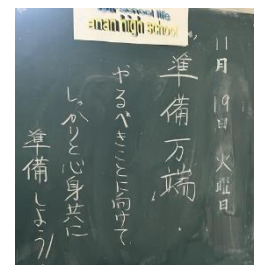 anan high school
11月19日火曜日
準備万端
やるべきことに向けて
しっかりと心身共に
準備しよう!